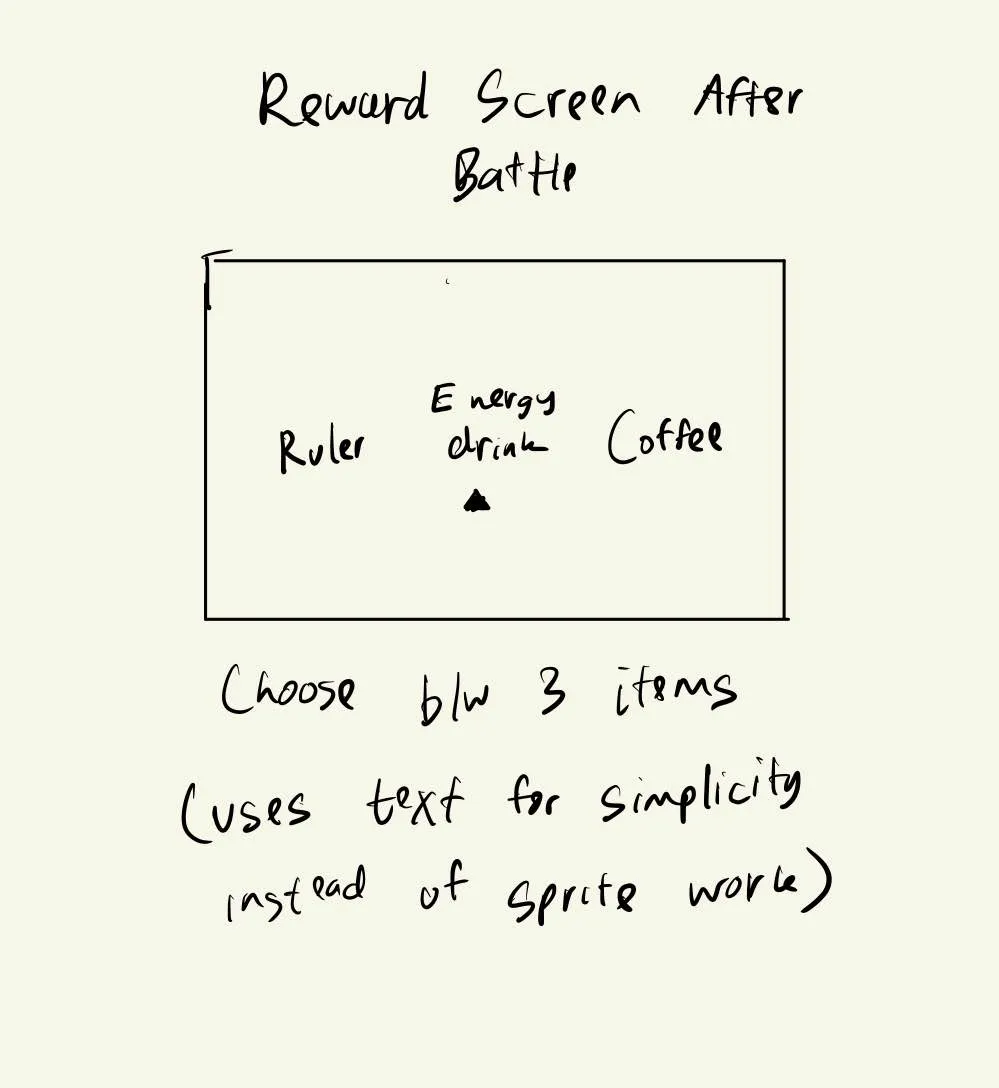 Reward Screen After
Battle
Energy
Ruler drink Coffee
Choose b/w 3 items
(uses text for simplicity
instead of sprite work)